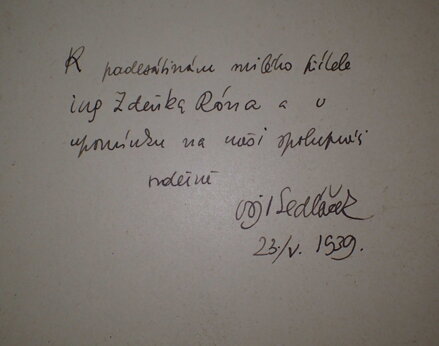 K padesátinám milého přítele
ing Zdeňka Róna a v
upomínku na naši spolupráci
srdečně
Vojt Sedláček
23./V. 1939.